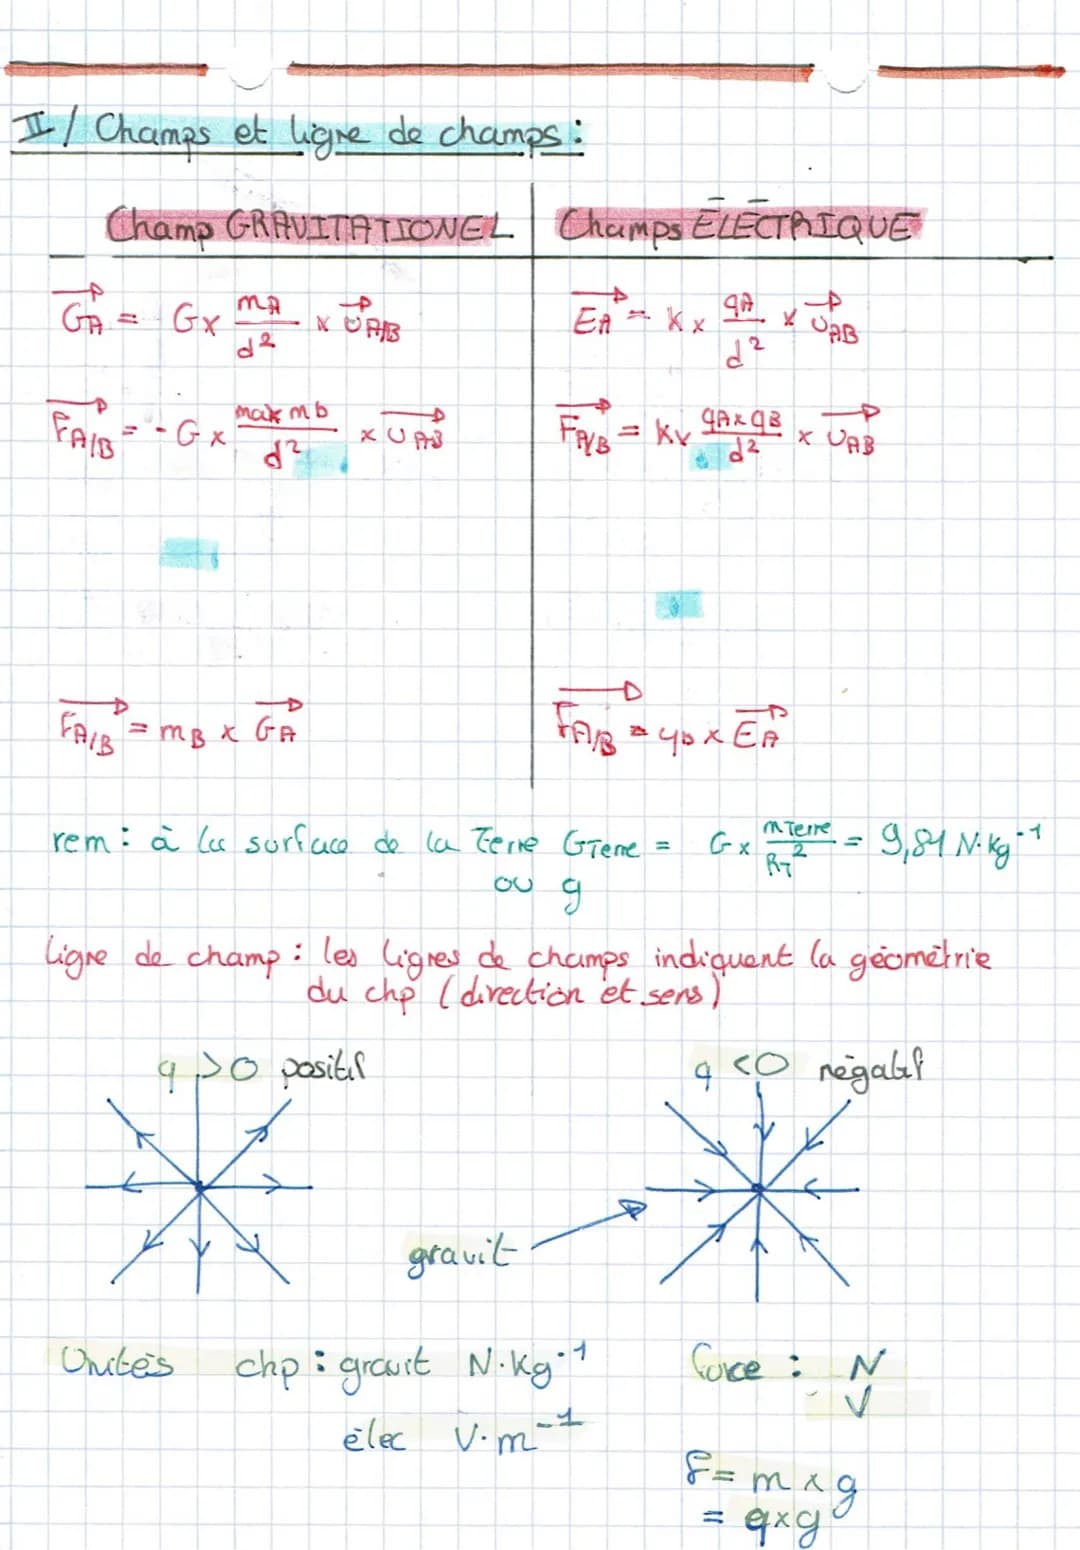 II/ Champs et ligne de champs :
Champ GRAVITATIONEL
Champs ÉLECTRIQUE
GA = G x mA / d² x UA/B
EA = K x qA / d² x UAB
FA/B = - G x ma x mb / d² x UAB
FA/B = K x qA x qB / d² x UAB
FA/B = mB x GA
FA/B = x EA
rem : à la surface de la Terre GTerre = G x mTerre / RT² = 9,81 N.kg⁻¹
ou g
Ligne de champ : les lignes de champs indiquent la géométrie
du chp (direction et sens)
q > 0 positif
q < 0 négatif
gravit
Unités chp : gravit N.kg⁻¹
force : N
V
élec V.m⁻¹
F = m x g
= q x g